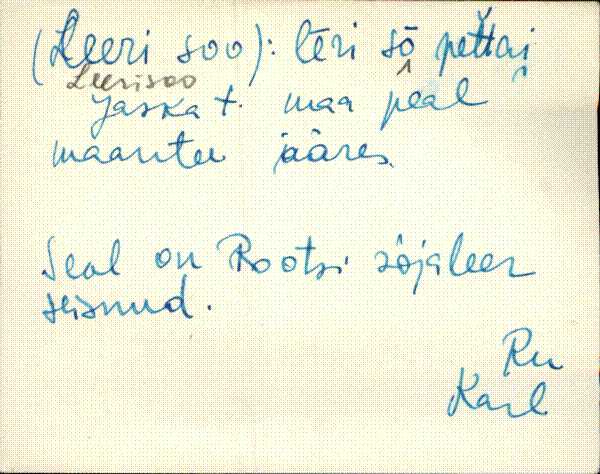 (Leeri soo): lēri sō pettai
Leerisoo
Jaska t. maa peal
maantee ääres.
Seal on Rootsi sõjaleer
seisnud.
Ru
Karl